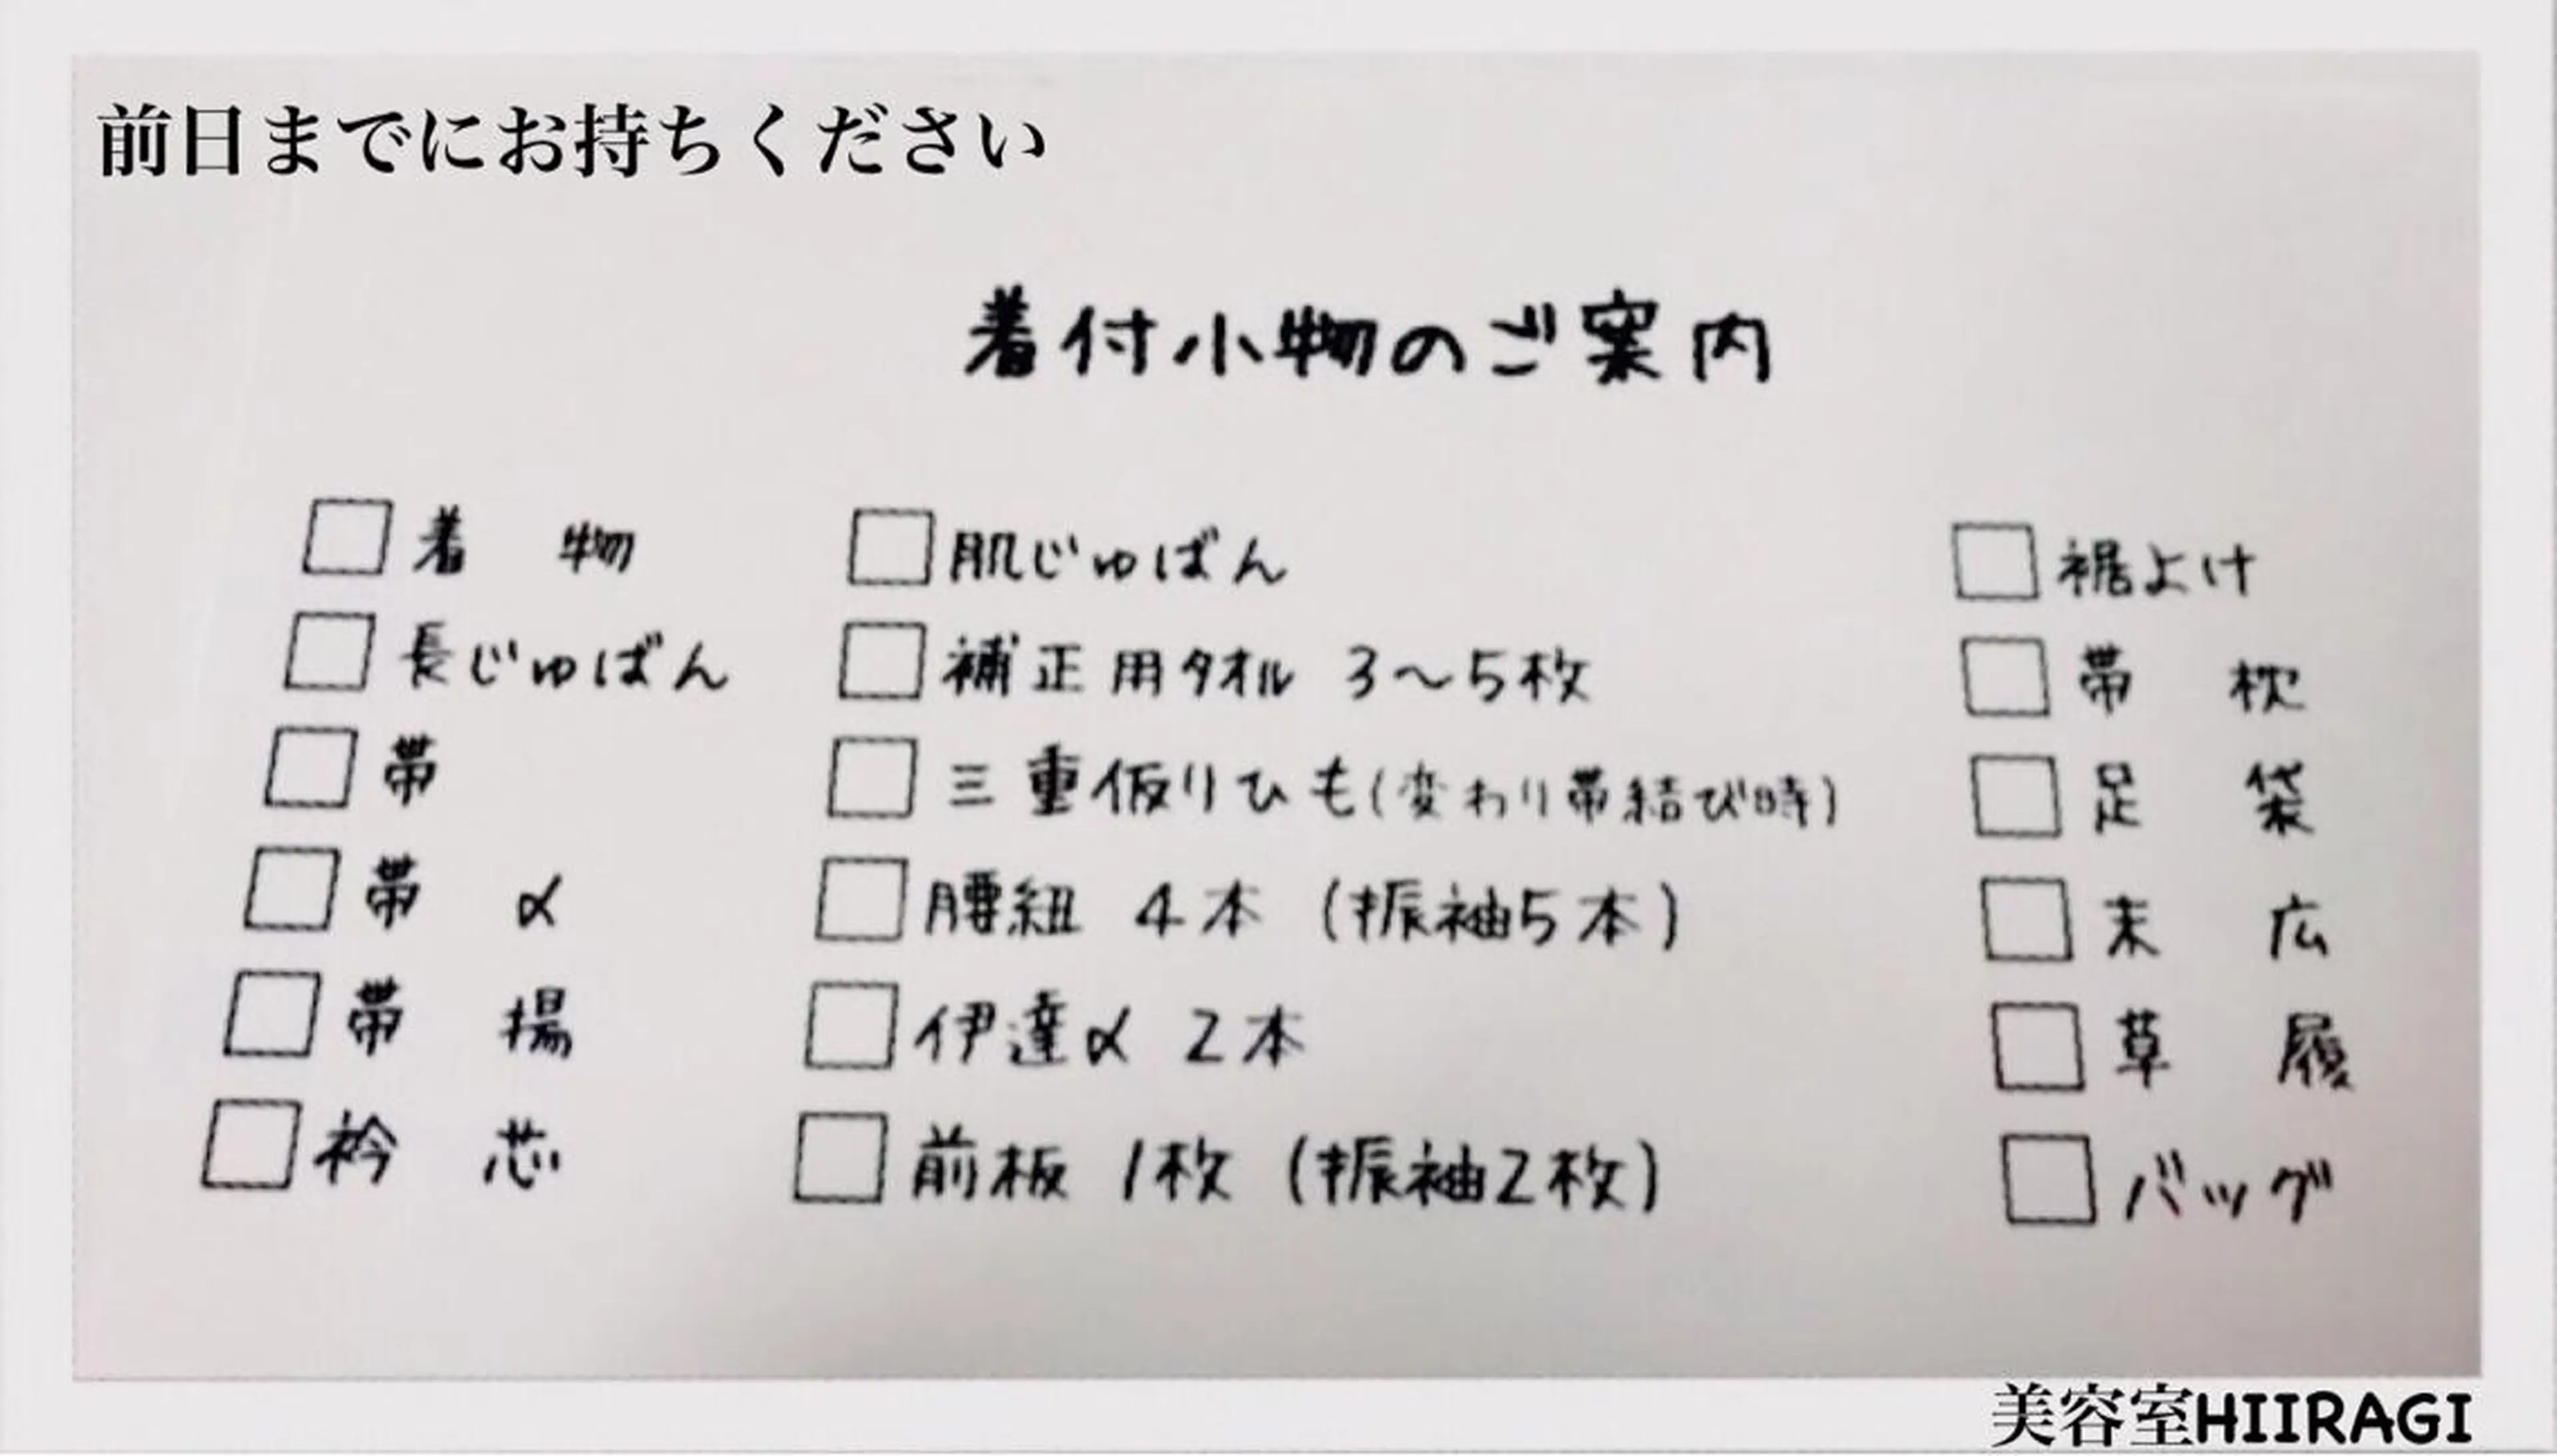 前日までにお持ちください
着付小物のご案内
□着 物
□長じゅばん
□帯
□帯 〆
□帯 揚
□衿 芯
□肌じゅばん
□補正用タオル 3～5枚
□三重仮りひも(変わり帯結び時)
□腰紐 4本 (振袖5本)
□伊達〆 2本
□前板 1枚 (振袖2枚)
□裾よけ
□帯 枕
□足 袋
□末 広
□草 履
□バッグ
美容室HIIRAGI